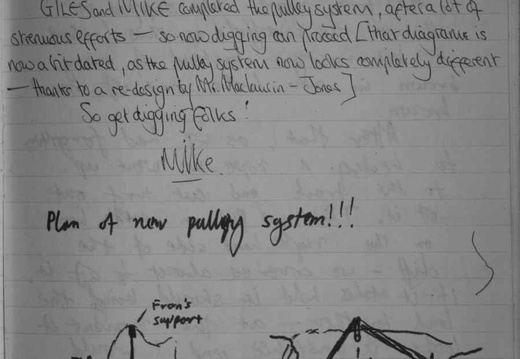 GILES and MIKE completed the pulley system, after a lot of
strenuous efforts — so now digging can proceed [that diagram is
now a bit dated, as the pulley system now looks completely different
— thanks to a re-design by Mr. Maclaurin - Jones]
So get digging folks!
Mike.
Plan of new pulley system!!!
Fron's
support